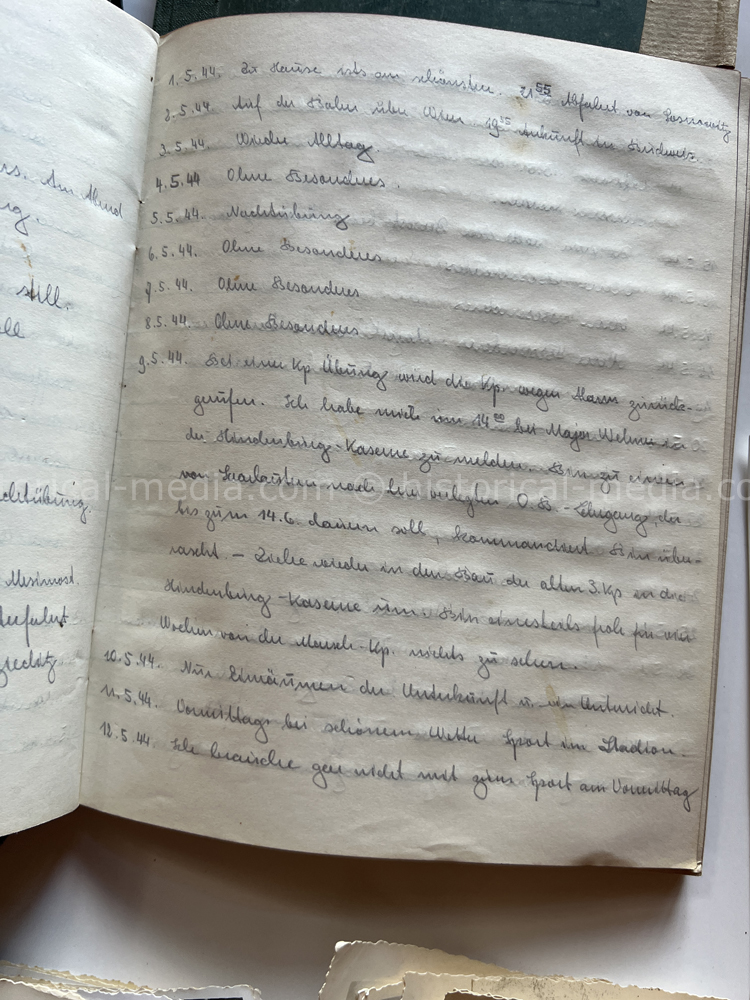 rs. Am Abend
ng.
still.
ell
chtübung.
Mesimost.
1.5.44. Zu Hause ists am schönsten. 21 55 Abfahrt von
2.5.44. Auf der Bahn über Wien 19 35 Ankunft in Budweis.
3.5.44. Wieder Alltag.
4.5.44 Ohne Besonderes.
5.5.44. Nachtübung
6.5.44. Ohne Besonderes
7.5.44. Ohne Besonderes
8.5.44. Ohne Besonderes
9.5.44. Bei einer Kp Übung wird die Kp. wegen Alarm zurück-
gerufen. Ich habe mich um 14 00 bei Major in
der Hindenburg-Kaserne zu melden. Bin zu einem
von nach hier verlegten O.B.-Lehrgang, der
bis zum 14.6. dauern soll, kommandiert. Bin über-
rascht – Ziehe wieder in den Bau der alten 3. Kp in die
Hindenburg-Kaserne um. Bin einesteils froh für vier
Wochen von der Marsch-Kp. nichts zu sehen.
10.5.44. Nur Einräumen der Unterkunft u. Unterricht.
11.5.44. Vormittags bei schönem Wetter Sport im Stadion.
12.5.44. Ich brauche gar nicht mit zum Sport am Vormittag
historical-media.com © historical-media.com